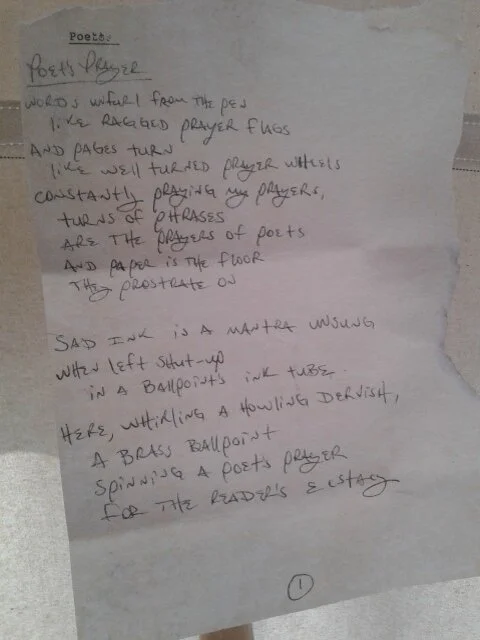 Poets.
POET'S PRAYER
WORDS UNFURL FROM THE PEN
LIKE RAGGED PRAYER FLAGS
AND PAGES TURN
LIKE WELL TURNED PRAYER WHEELS
CONSTANTLY PRAYING MY PRAYERS,
TURNS OF PHRASES
ARE THE PRAYERS OF POETS
AND PAPER IS THE FLOOR
THEY PROSTRATE ON
SAD INK IS A MANTRA UNSUNG
WHEN LEFT SHUT-UP
IN A BALLPOINT'S INK TUBE.
HERE, WHIRLING A HOWLING DERVISH,
A BRASS BALLPOINT
SPINNING A POET'S PRAYER
FOR THE READER'S ECSTASY
1